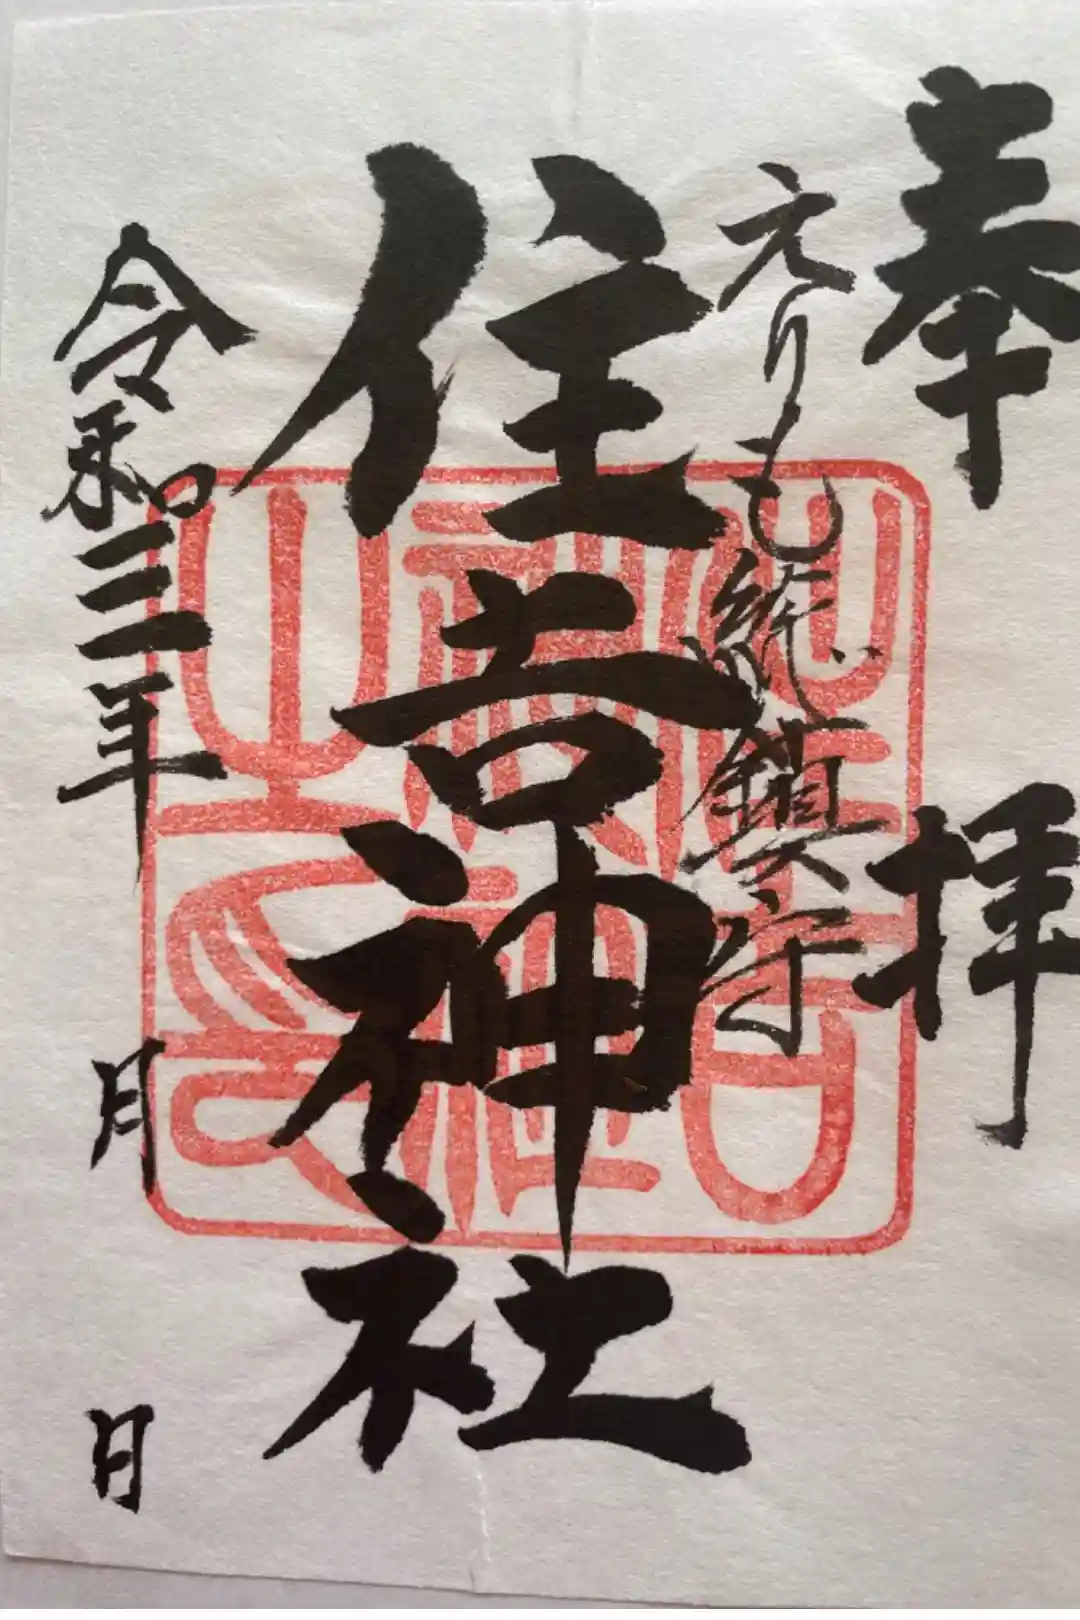 奉拝
えりも総鎮守
住吉神社
令和三年 月 日